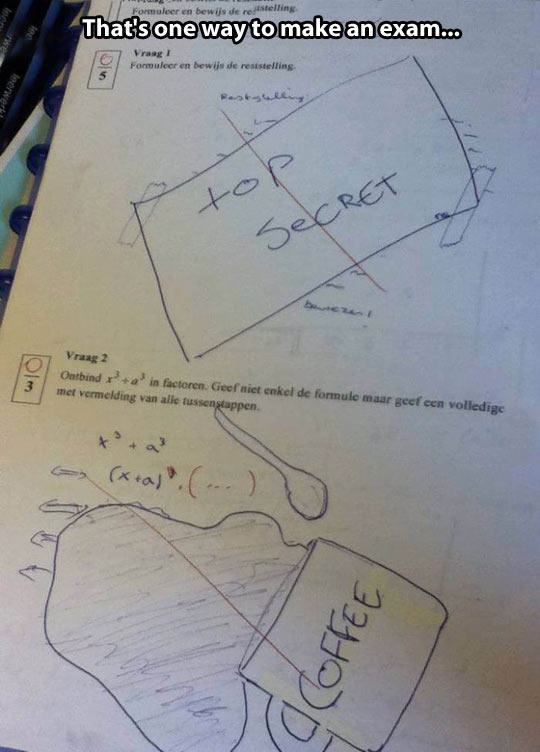 Formuleer en bewijs de reststelling.
That's one way to make an exam...
Vraag 1
0
5
Formuleer en bewijs de reststelling.
Reststelling:
TOP
SECRET
bewezen!
Vraag 2
0
3
Ontbind x³ + a³ in factoren. Geef niet enkel de formule maar geef een volledige
met vermelding van alle tussenstappen.
x³ + a³
(x+a) . (...)
COFFEE